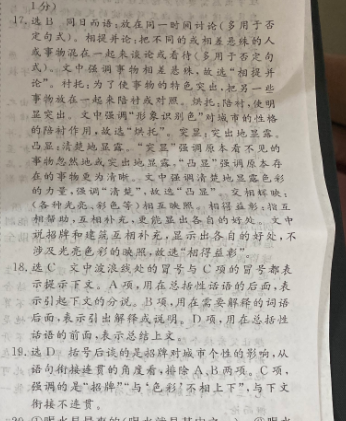 1分)
17.选B 同日而语:放在同一时间讨论(多用于否
定句式)。相提并论:把不同的或相差悬殊的人
或事物混在一起来谈论或看待(多用于否定句
式)。文中强调事物相差悬殊,故选“相提并
论”。衬托:为了使事物的特色突出,把另一些
事物放在一起来陪衬或对照。烘托:陪衬,使明
显突出。文中强调“形象识别色”对城市的性格
的陪衬作用,故选“烘托”。突显:突出地显露。
凸显:清楚地显露。“突显”强调原本看不见的
事物忽然地或突出地显露;“凸显”强调原本存
在的事物更为清晰。文中强调清楚地显露色彩
的力量,强调“清楚”,故选“凸显”。交相辉映:
(各种光亮、彩色等)相互映照。相得益彰:指互
相帮助,互相补充,更能显出各自的好处。文中
说招牌和建筑互相补充,显示出各自的好处,不
涉及光亮色彩的映照,故选“相得益彰”。
18.选C 文中波浪线处的冒号与C项的冒号都表
示提示下文。A项,用在总括性话语的后面,表
示引起下文的分说。B项,用在需要解释的词语
后面,表示引出解释或说明。D项,用在总括性
话语的前面,表示总结上文。
19.选D 括号后谈的是招牌对城市个性的影响,从
语句衔接连贯的角度看,排除A、B两项。C项,
强调的是“招牌”“与‘色彩’不相上下”,与下文
衔接不连贯。